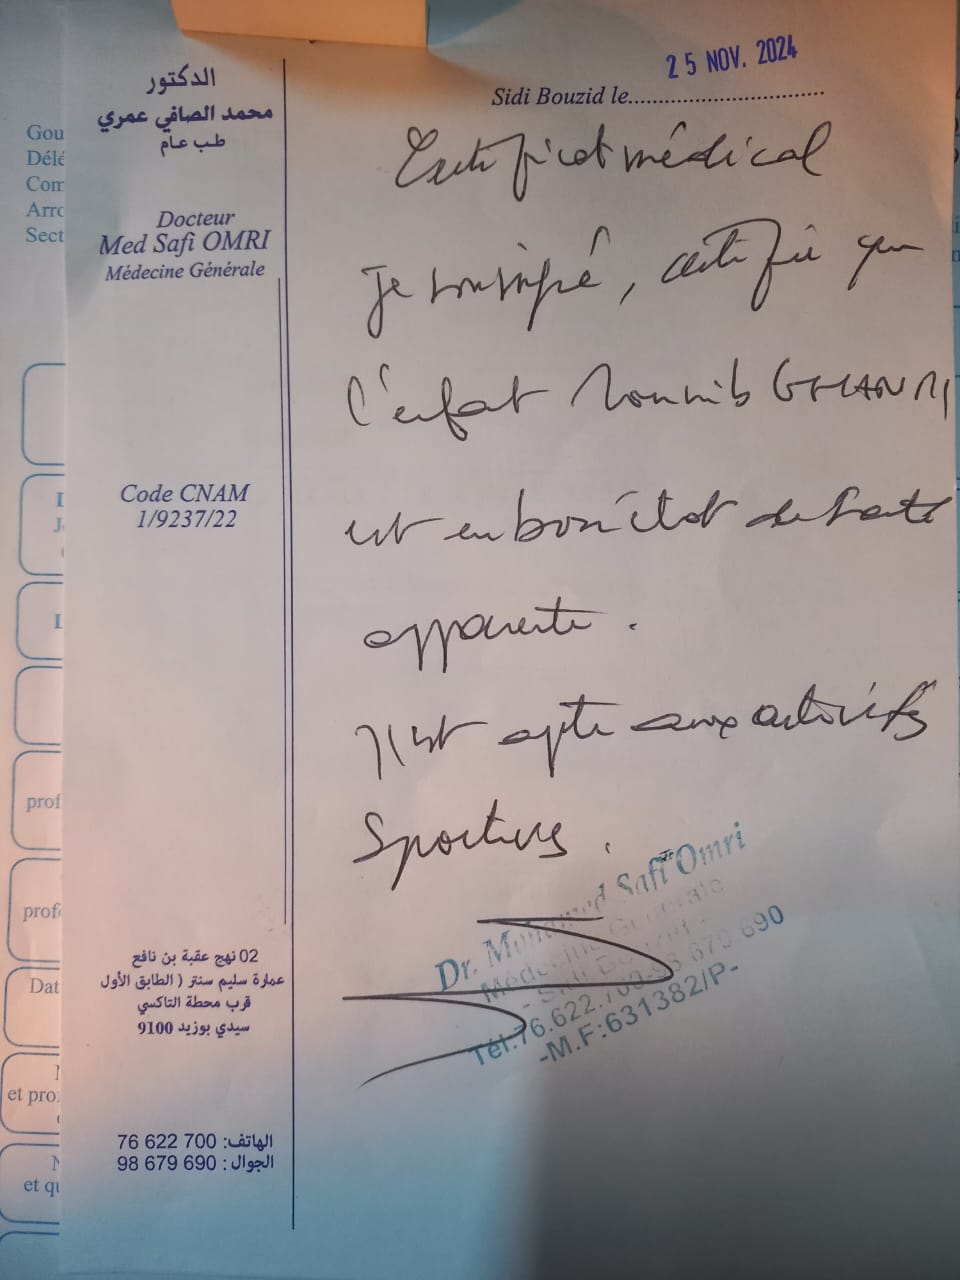 الدكتور
محمد الصافي عمري
طب عام
Docteur
Med Safi OMRI
Médecine Générale
Code CNAM
1/9237/22
02 نهج عقبة بن نافع
عمارة سليم سنتر ( الطابق الأول
قرب محطة التاكسي
سيدي بوزيد 9100
الهاتف: 700 622 76
الجوال : 690 679 98
25 NOV. 2024
Sidi Bouzid le
Certificat médical
Je soussigné, certifie que
l'enfant GHANMI
est en bon état de santé
apparente.
Il est apte aux activités
Sportives.
Dr. Mohamed Safi Omri
Médecine Générale
- Sidi Bouzid -
Tél:76.622.700-98 679 690
-M.F:631382/P-
Gou
Délé
Com
Arro
Sect
prof
prof
Dat
et pro
et qu